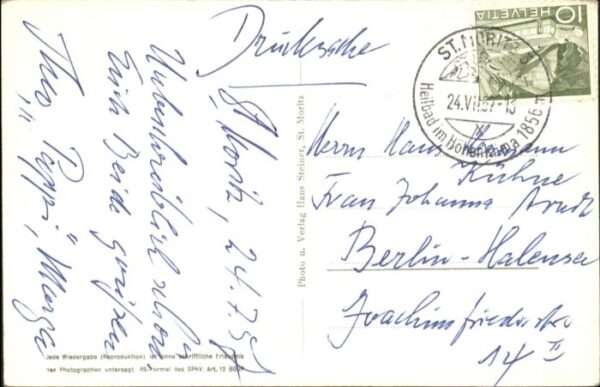 Drucksache
St. Moritz, 24.7.57
Unbeschreiblich schön
Euch Beide grüßen
Theo "Peppi", Marga
Photo u. Verlag Hans Steiner, St. Moritz
Jede Wiedergabe (Reproduktion) ist ohne schriftliche Erlaubnis
der Photographen untersagt.
HELVETIA 10
ST. MORITZ
24.VII.57
Heilbad im Hochenklima 1856 m
Herrn Hans
Kühne
Frau Johanna Arndt
Berlin-Halensee
Joachimfriedrichstr
14 II